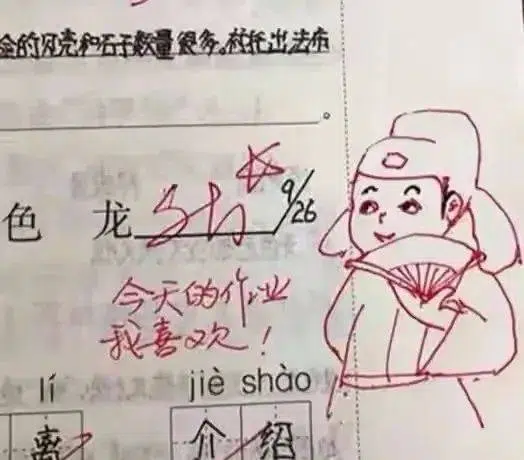 的贝壳和石子数量很多。衬托出、去布
。
色 龙 9/26
今天的作业
我喜欢！
lí jiè shào
离 介 绍